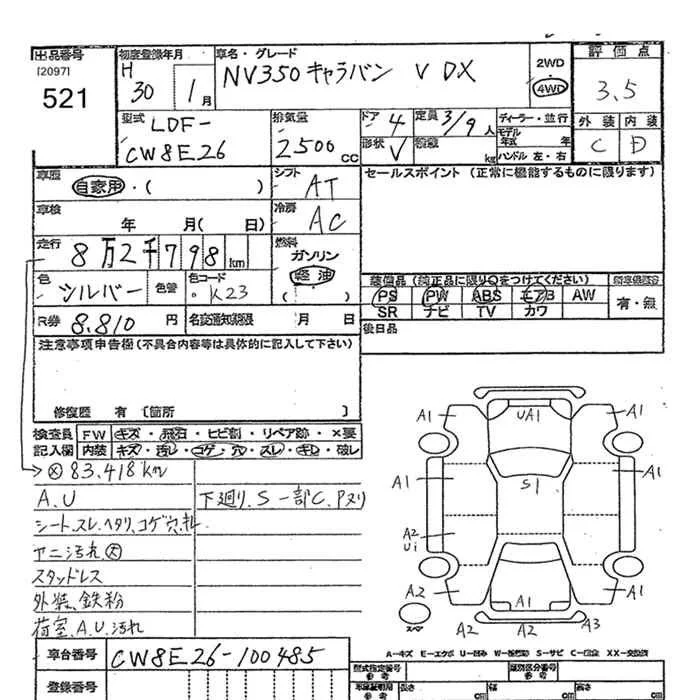 出品番号
[2097]
521
初度登録年月
H 30 1月
車名・グレード
NV350キャラバン V DX
2WD
4WD
評価点
3.5
外装 内装
C D
型式 LDF-
CW8E26
排気量
2500 cc
ドア 4
定員 3/9 人
形状 V
積載 kg
ディーラー・並行
モデル年式 年
ハンドル 左・右
車歴 自家用・( )
シフト AT
セールスポイント (正常に機能するものに限ります)
車検 年 月( 日)
冷房 AC
走行 8万2千798km
燃料
ガソリン
軽油
( )
色 シルバー 色替
色コード K23
装備品 (純正品に限り○をつけてください)
PS PW ABS エアB AW
SR ナビ TV カワ
有・無
R券 8,810 円
名変通知期限 月 日
後日品
注意事項申告欄 (不具合内容等は具体的に記入して下さい)
修復歴 有 [箇所 ]
検査員 FW キズ・飛石・ヒビ割・リペア跡・×要
記入欄 内装 キズ・汚れ・コゲ・穴・スレ・キレ・破レ
83,418km
A.U
下廻り.S 一部C.Pヌリ
シート.スレ.ヘタリ.コゲ穴.キレ
ヤニ汚れ 大
スタッドレス
外装.鉄粉
荷室.A.U.汚れ
A1 UA1 A1
A1 S1 A1
A2
Ui
A2 A1 A2
スペア A2 A2 A3
A-キズ E-エクボ U-凹み W-板金跡 S-サビ C-腐食 XX-交換済
車台番号 CW8E26-100485
登録番号
型式指定番号
参考
類別区分番号
参考
長さ cm 幅 cm 高さ cm